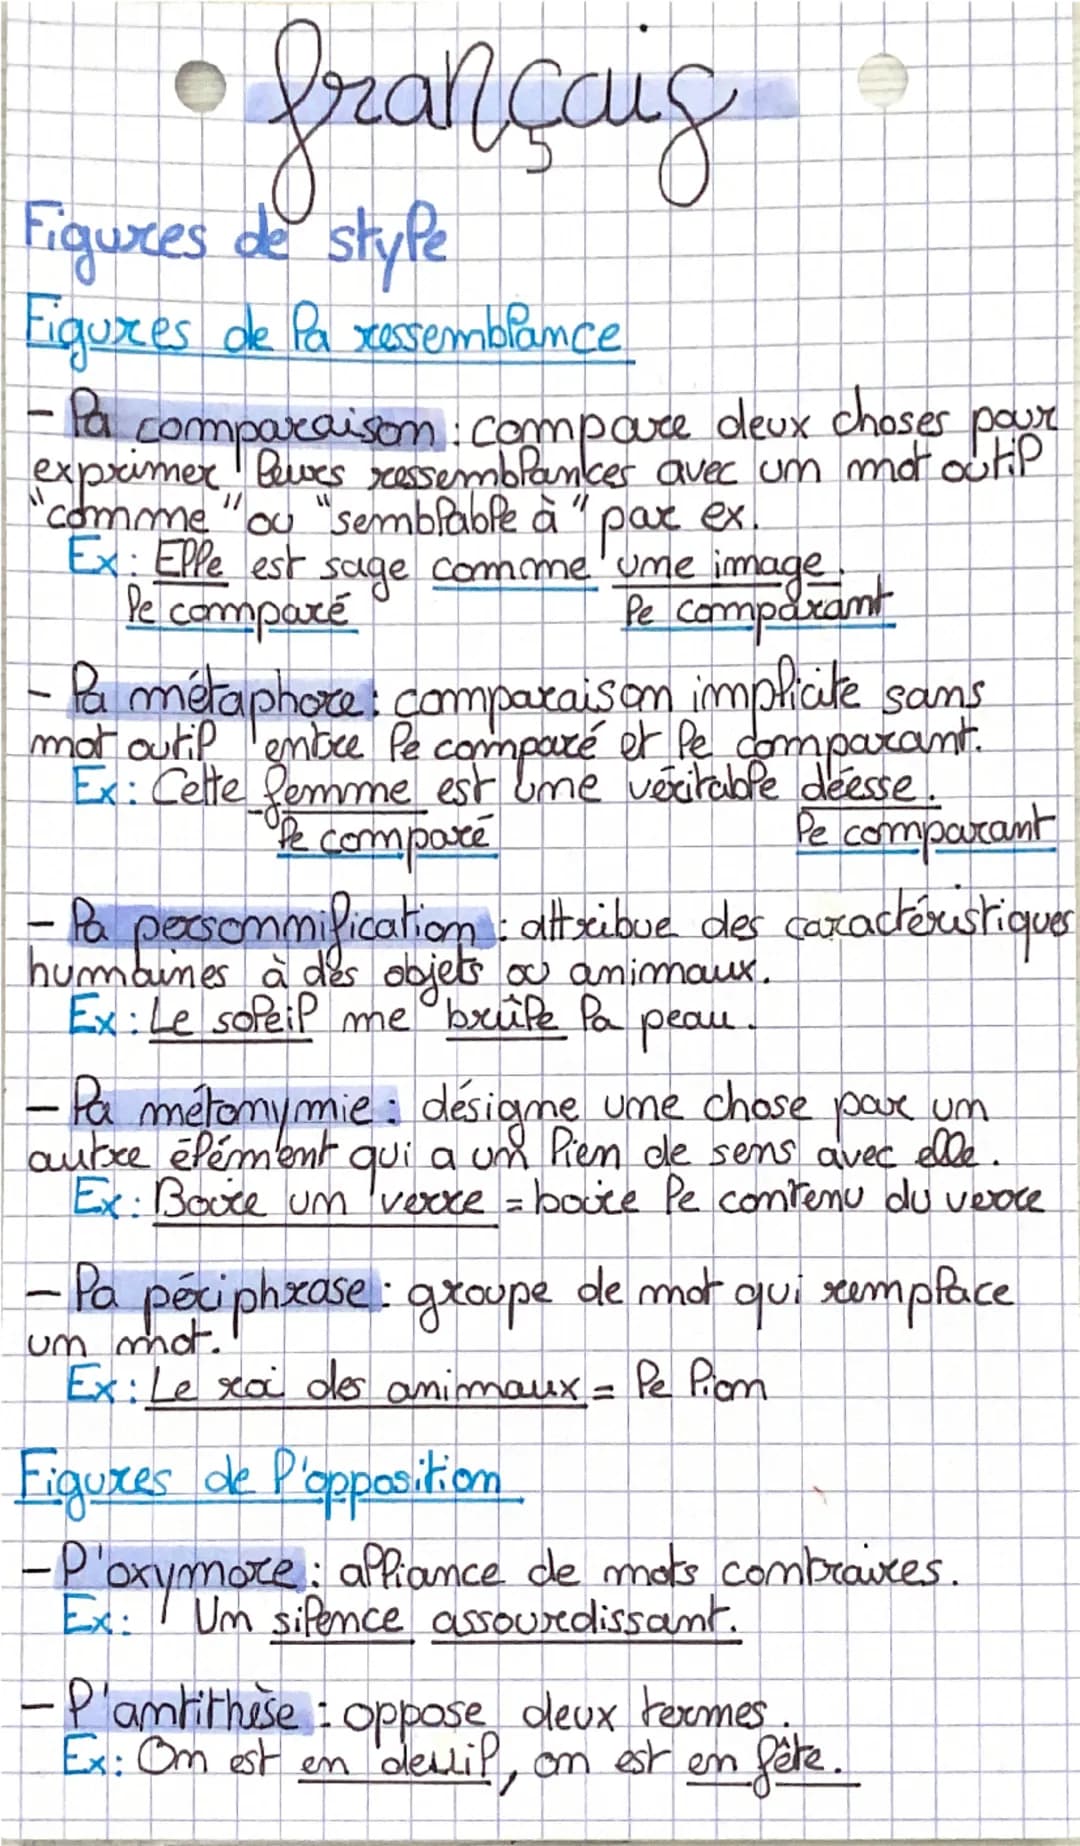 français
Figures de style
Figures de la ressemblance
- la comparaison : compare deux choses pour
exprimer leurs ressemblances avec un mot outil
"comme" ou "semblable à" par ex.
Ex : Elle est sage comme une image.
le comparé le comparant
- la métaphore : comparaison implicite sans
mot outil entre le comparé et le comparant.
Ex : Cette femme est une véritable déesse.
le comparé le comparant
- la personnification : attribue des caractéristiques
humaines à des objets ou animaux.
Ex : Le soleil me brûle la peau.
- la métonymie : désigne une chose par un
autre élément qui a un lien de sens avec elle.
Ex : Boire un verre = boire le contenu du verre
- la périphrase : groupe de mot qui remplace
un mot.
Ex : Le roi des animaux = le lion
Figures de l'opposition
- l'oxymore : alliance de mots contraires.
Ex : Un silence assourdissant.
- l'antithèse : oppose deux termes.
Ex : On est en deuil, on est en fête.